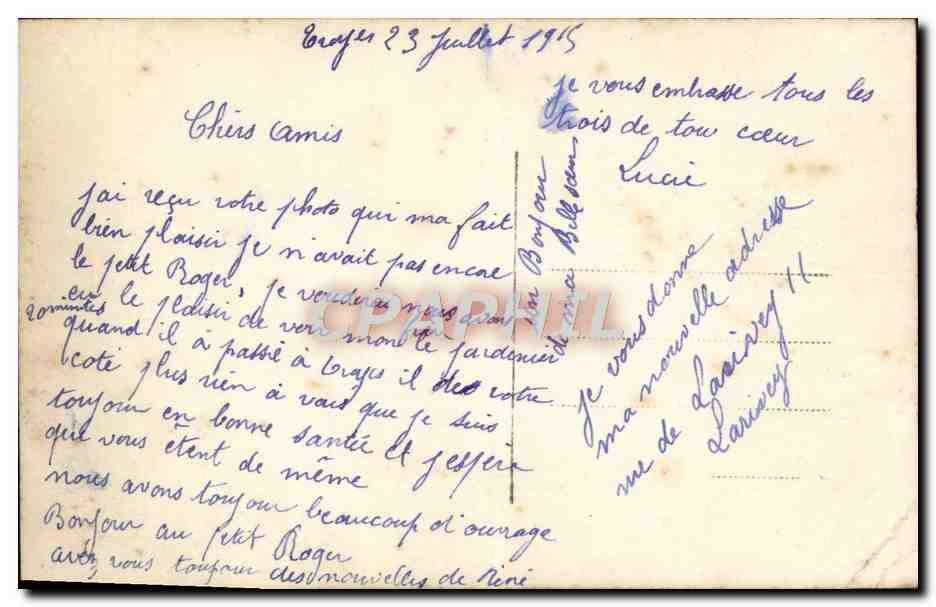 Troyes 23 Juillet 1915
Chers Amis
J'ai reçu votre photo qui ma fait
bien plaisir je n'avait pas encore
le petit Roger, je voudrais nous avons
eu le plaisir de voir mon le jardinier
20 minutes
quand il à passé à troyes il de votre
coté plus rien à vais que je suis
toujour en bonne santée et j'espère
que vous étent de même
nous avons toujour beaucoup d'ouvrage
Bonjour au petit Roger
avez vous toujour des nouvelles de Réné
un Bonjour
de ma Belle soeur
je vous embrasse tous les
trois de tou coeur
Lucie
je vous donne
ma nouvelle adresse
rue de Larivey 11
Larivey
CPAPHIL